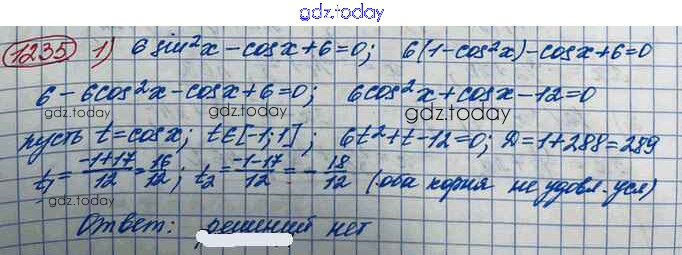 gdz.today
1235 1) 6 sin²x - cosx + 6 = 0; 6(1-cos²x) - cosx + 6 = 0
6 - 6cos²x - cosx + 6 = 0; 6cos²x + cosx - 12 = 0
gdz.today gdz.today gdz.today
пусть t = cosx; t∈[-1;1]; 6t² + t - 12 = 0; D = 1 + 288 = 289
t₁ = (-1+17)/12 = 16/12; t₂ = (-1-17)/12 = -18/12 (оба корня не удовл. усл)
gdz.today gdz.today gdz.today
Ответ: решений нет